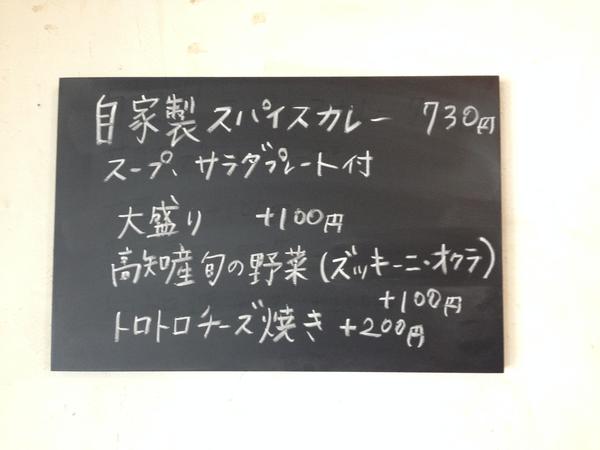 自家製スパイスカレー 730円
スープ、サラダプレート付
大盛り +100円
高知産旬の野菜(ズッキーニ・オクラ)
+100円
トロトロチーズ焼き +200円